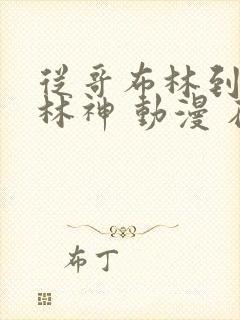 從哥布林到
林神 動漫
布丁